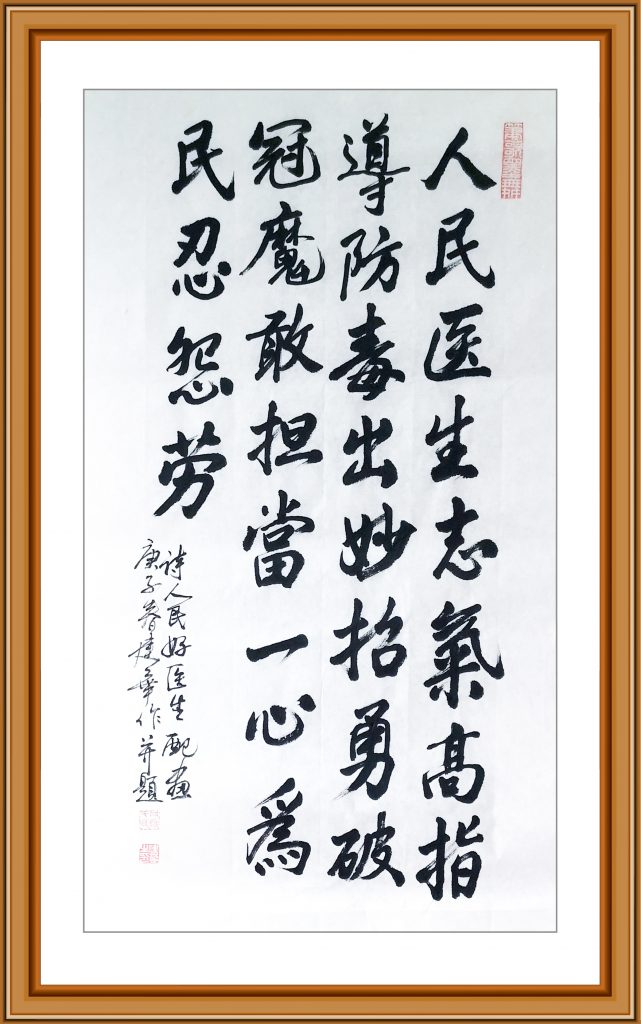 人民医生志氣髙指
導防毒出妙招勇破
冠魔敢担當一心為
民忍怨劳
诗人民好医生配画
庚子春華作并題